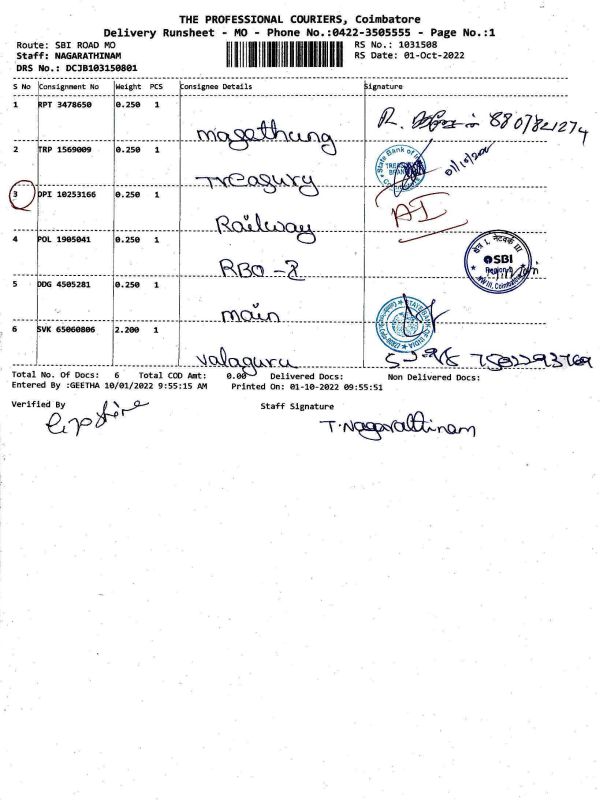 THE PROFESSIONAL COURIERS, Coimbatore
Delivery Runsheet - MO - Phone No.:0422-3505555 - Page No.:1
Route: SBI ROAD MO
RS No.: 1031508
Staff: NAGARATHINAM
RS Date: 01-Oct-2022
DRS No.: DCJB103150801
S No Consignment No Weight PCS Consignee Details Signature
1 RPT 3478650 0.250 1
R. 8807821274
magethung
2 TRP 1569009 0.250 1
State Bank of
TREASURY
BRANCH
01/10/2022
Treasury
3 DPI 10253166 0.250 1
AI
Railway
4 POL 1905041 0.250 1
क्षेत्र I, नेटवर्क III
SBI
Region
NW III, Coimbatore
RBO-2
5 DDG 4505281 0.250 1
STATE BANK OF INDIA
main
6 SVK 65060806 2.200 1
valaguru
Total No. Of Docs: 6 Total COD Amt: 0.00 Delivered Docs: Non Delivered Docs:
Entered By :GEETHA 10/01/2022 9:55:15 AM Printed On: 01-10-2022 09:55:51
Verified By
Staff Signature
T.Nagarathinam